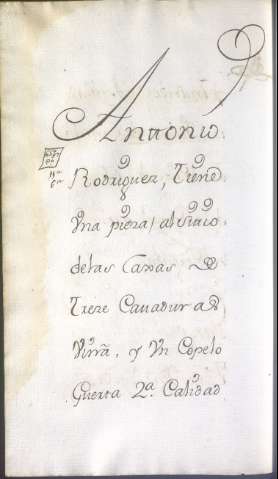 Antonio
Rodriguez, Tiene
Vna pieza, al Sitio
delas Casas de
treze Cauadur as
Viña, y Vn Copelo
Guerta 2ª. Calidad